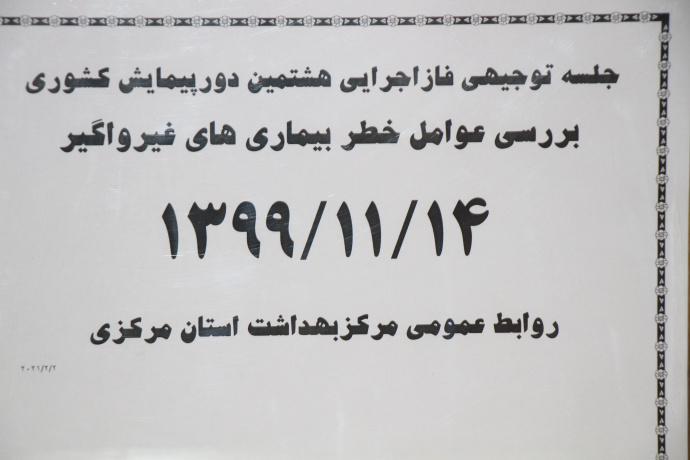 جلسه توجیهی فاز اجرایی هشتمین دور پیمایش کشوری
بررسی عوامل خطر بیماری های غیرواگیر
۱۳۹۹/۱۱/۱۴
روابط عمومی مرکز بهداشت استان مرکزی
۲۰۲۱/۲/۲